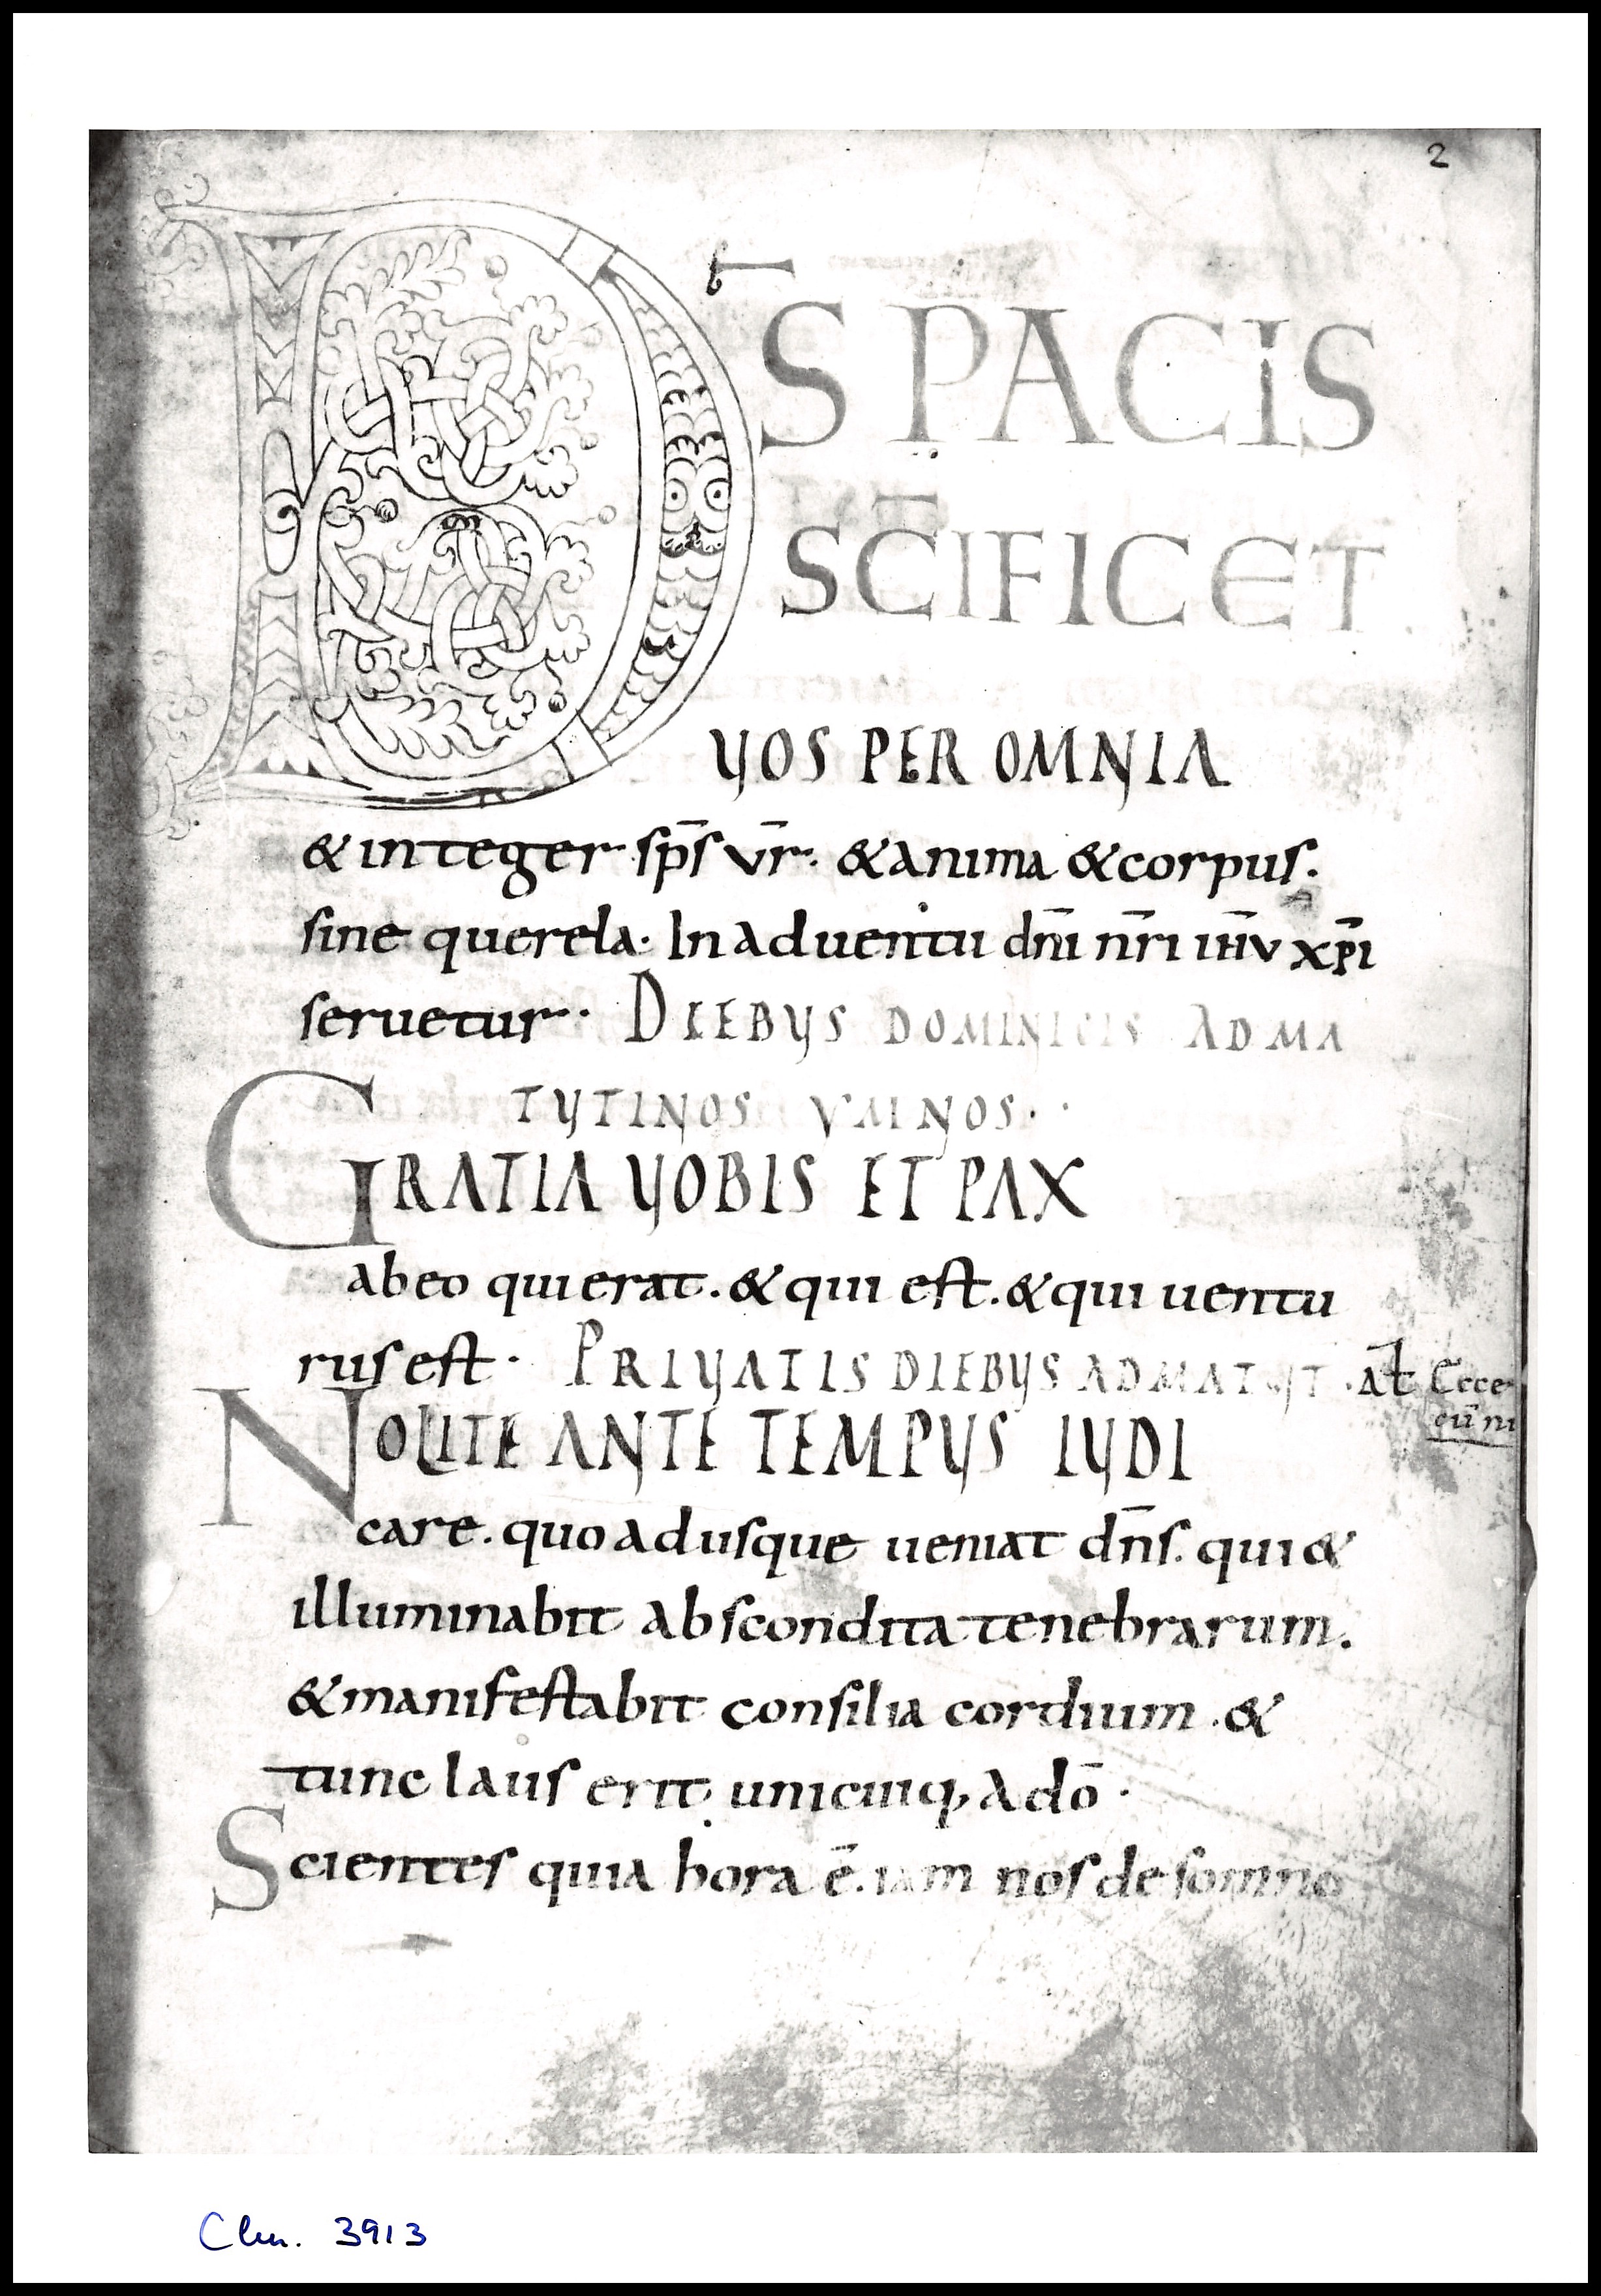 2
D̅S PACIS
SC̅IFICET
VOS PER OMNIA
& integer sp̅s vr̅. & anima & corpus.
sine querela. In aduentu dn̅i nr̅i ih̅v xp̅i
seruetur. DIEBVS DOMINICIS AD MA
TVTINOS YMNOS.
GRATIA VOBIS ET PAX
ab eo qui erat. & qui est. & qui uentu
rus est. PRIVATIS DIEBVS AD MATVT
NOLITE ANTE TEMPVS IVDI
care. quoadusque ueniat dn̅s. qui &
illuminabit abscondita tenebrarum.
& manifestabit consilia cordium. &
tunc laus erit unicuiq; a do̅.
Scientes quia hora e̅. iam nos de somno
Clm. 3913